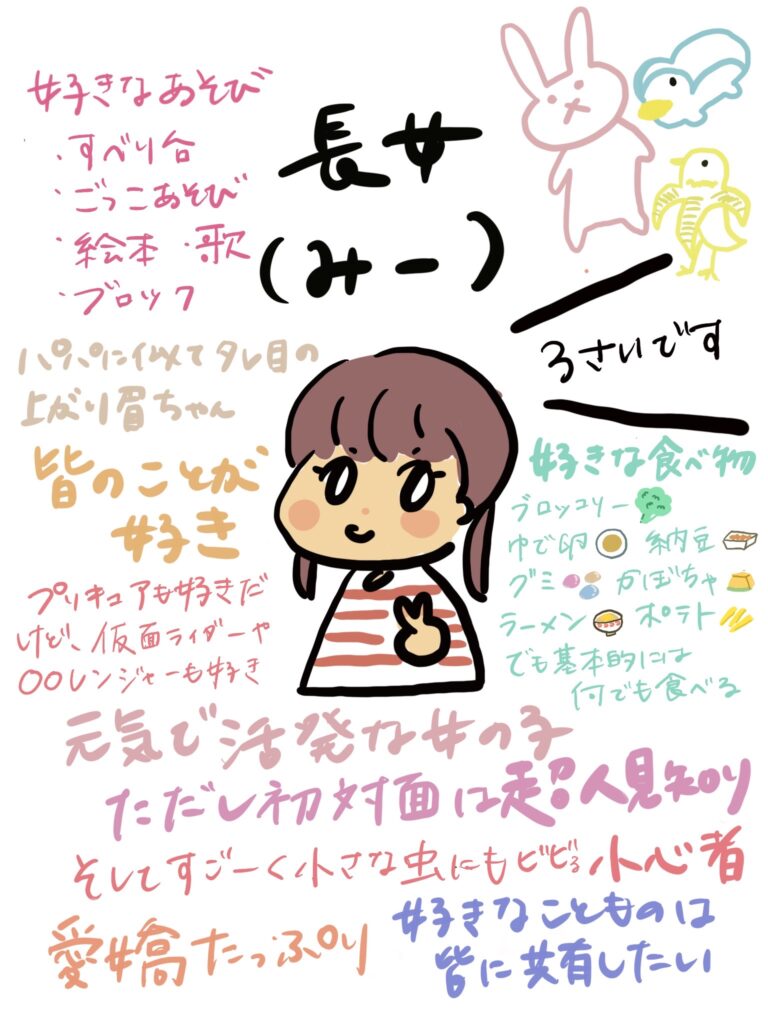 長女
(みー)
3さいです
好きなあそび
・すべり台
・ごっこあそび
・絵本 ・歌
・ブロック
パパに似てタレ目の
上がり眉ちゃん
皆のことが
好き
プリキュアも好きだ
けど、仮面ライダーや
〇〇レンジャーも好き
好きな食べ物
ブロッコリー
ゆで卵 納豆
グミ かぼちゃ
ラーメン ポテト
でも基本的には
何でも食べる
元気で活発な女の子
ただし初対面は超人見知り
そしてすごーく小さな虫にもビビる小心者
愛嬌たっぷり
好きなことものは
皆に共有したい